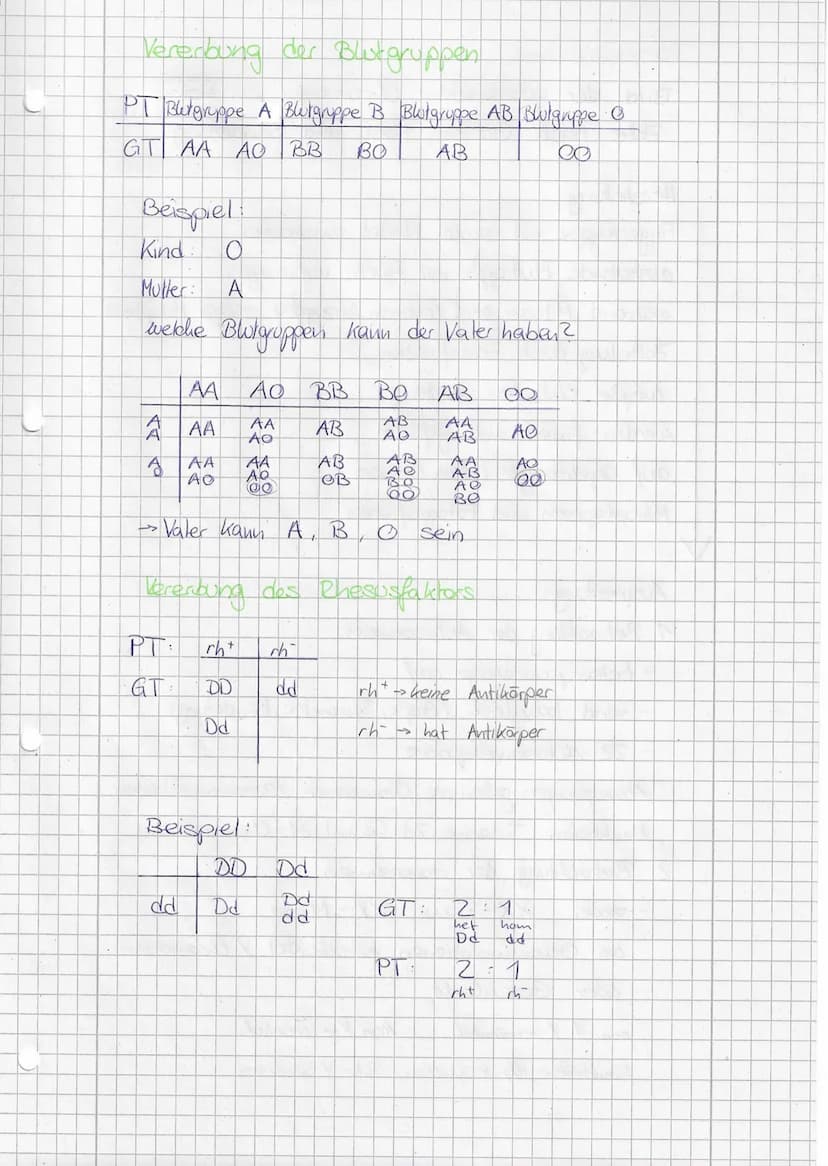 Vererbung der Blutgruppen
PT Blutgruppe A Blutgruppe B Blutgruppe AB Blutgruppe 0
GT AA AO BB BO AB OO
Beispiel:
Kind: O
Mutter: A
welche Blutgruppen kann der Vater haben?
AA AO BB BO AB OO
A AA AB AA
A AA AO AB AO AB AO
A AA AA AB AB AA AO
O AO AO OB AO AB OO
OO BO AO
OO BO
→ Vater kann A, B, O sein
Vererbung des Rhesusfaktors
PT: rh+ rh-
GT: DD dd rh+ → keine Antikörper
Dd rh- → hat Antikörper
Beispiel:
DD Dd
dd Dd Dd GT: 2 : 1
dd het hom
Dd dd
PT: 2 : 1
rh+ rh-